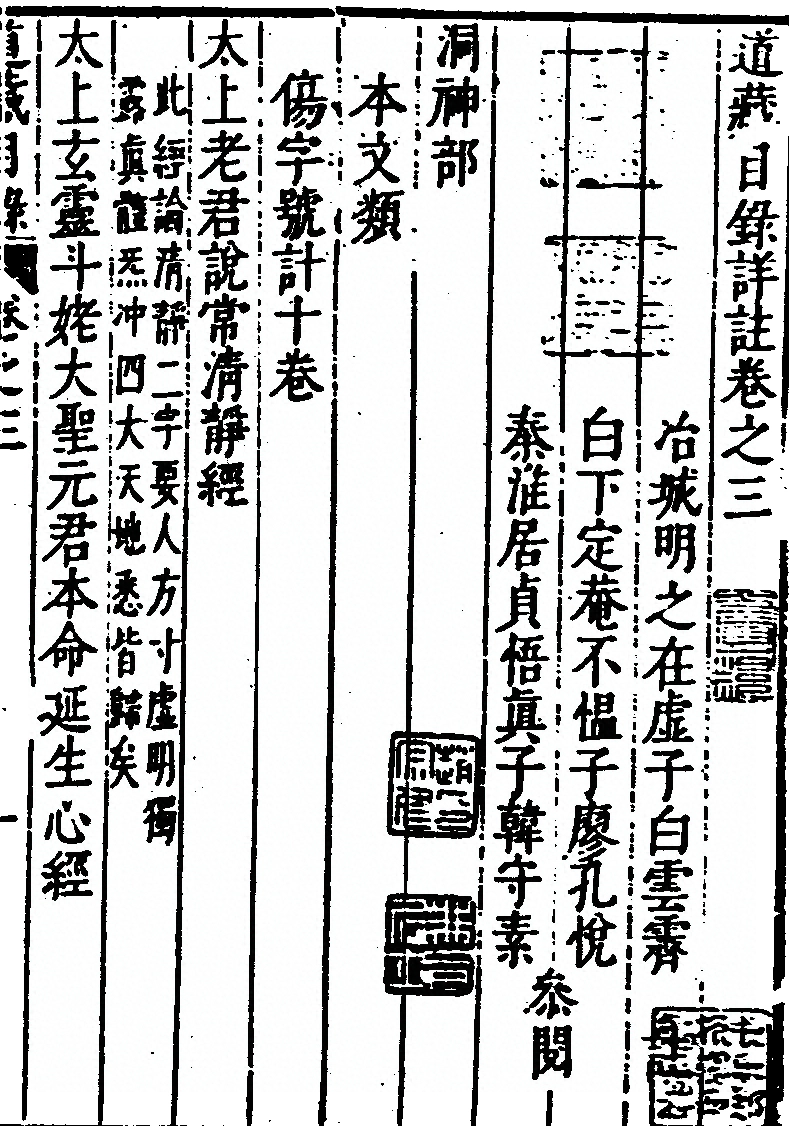 道藏目錄詳註卷之三
冶城明之在虛子白雲霽
白下定菴不慍子廖孔悅
秦淮居貞悟眞子韓守素
叅閱
洞神部
本文類
傷字號計十卷
太上老君說常清靜經
此經論清靜二字要人方寸虛明獨
露眞體炁冲四大天地悉皆歸矣
太上玄靈斗姥大聖元君本命延生心經
道藏目錄
卷之三
一